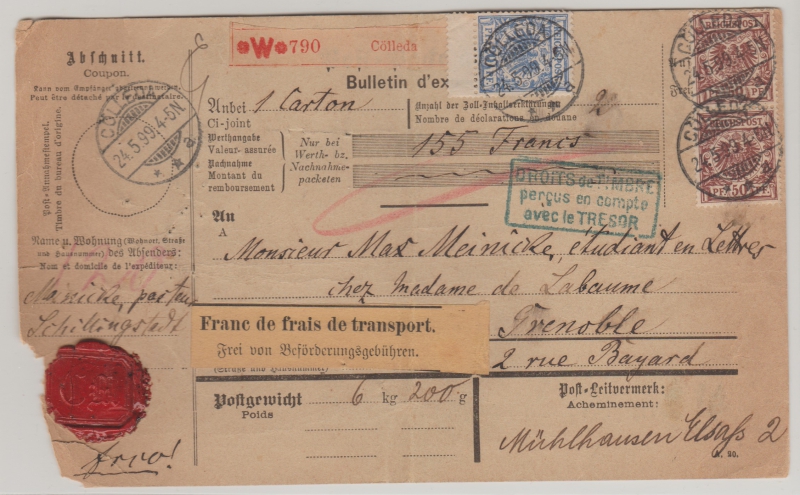 Abschnitt.
Coupon.
Kann vom Empfänger abgetrennt werden.
Peut être détaché par le destinataire.
CÖLLEDA
24.5.99.4-5N.
* * a
Post-Annahmestempel.
Timbre du bureau d'origine.
Name u. Wohnung (Wohnort, Straße
und Hausnummer) des Absenders:
Nom et domicile de l'expéditeur:
Meinicke, pasteur
Schillingstedt
frco!
*W*790 Cölleda
CÖLLEDA
24.5.99.4-5N.
* * a
Bulletin d'ex
Anbei 1 Carton
Ci-joint
Anzahl der Zoll-Inhaltserklärungen 2
Nombre de déclarations en douane
Werthangabe
Valeur-assurée
Nachnahme
Montant du
remboursement
Nur bei
Werth- bz.
Nachnahme-
packeten
155 Francs
DROITS de TIMBRE
perçus en compte
avec le TRESOR
REICHSPOST
CÖLLEDA
24.5.99.4-5N.
REICHSPOST
CÖLLEDA
PF 50 PF
An
A
Monsieur Max Meinicke, étudiant en Lettres
chez Madame de Labaume
Franc de frais de transport.
Frei von Beförderungsgebühren.
Grenoble
2 rue Bayard
(Straße und Hausnummer)
Postgewicht 6 kg 200 g
Poids
Post-Leitvermerk:
Acheminement:
Mühlhausen Elsaß 2